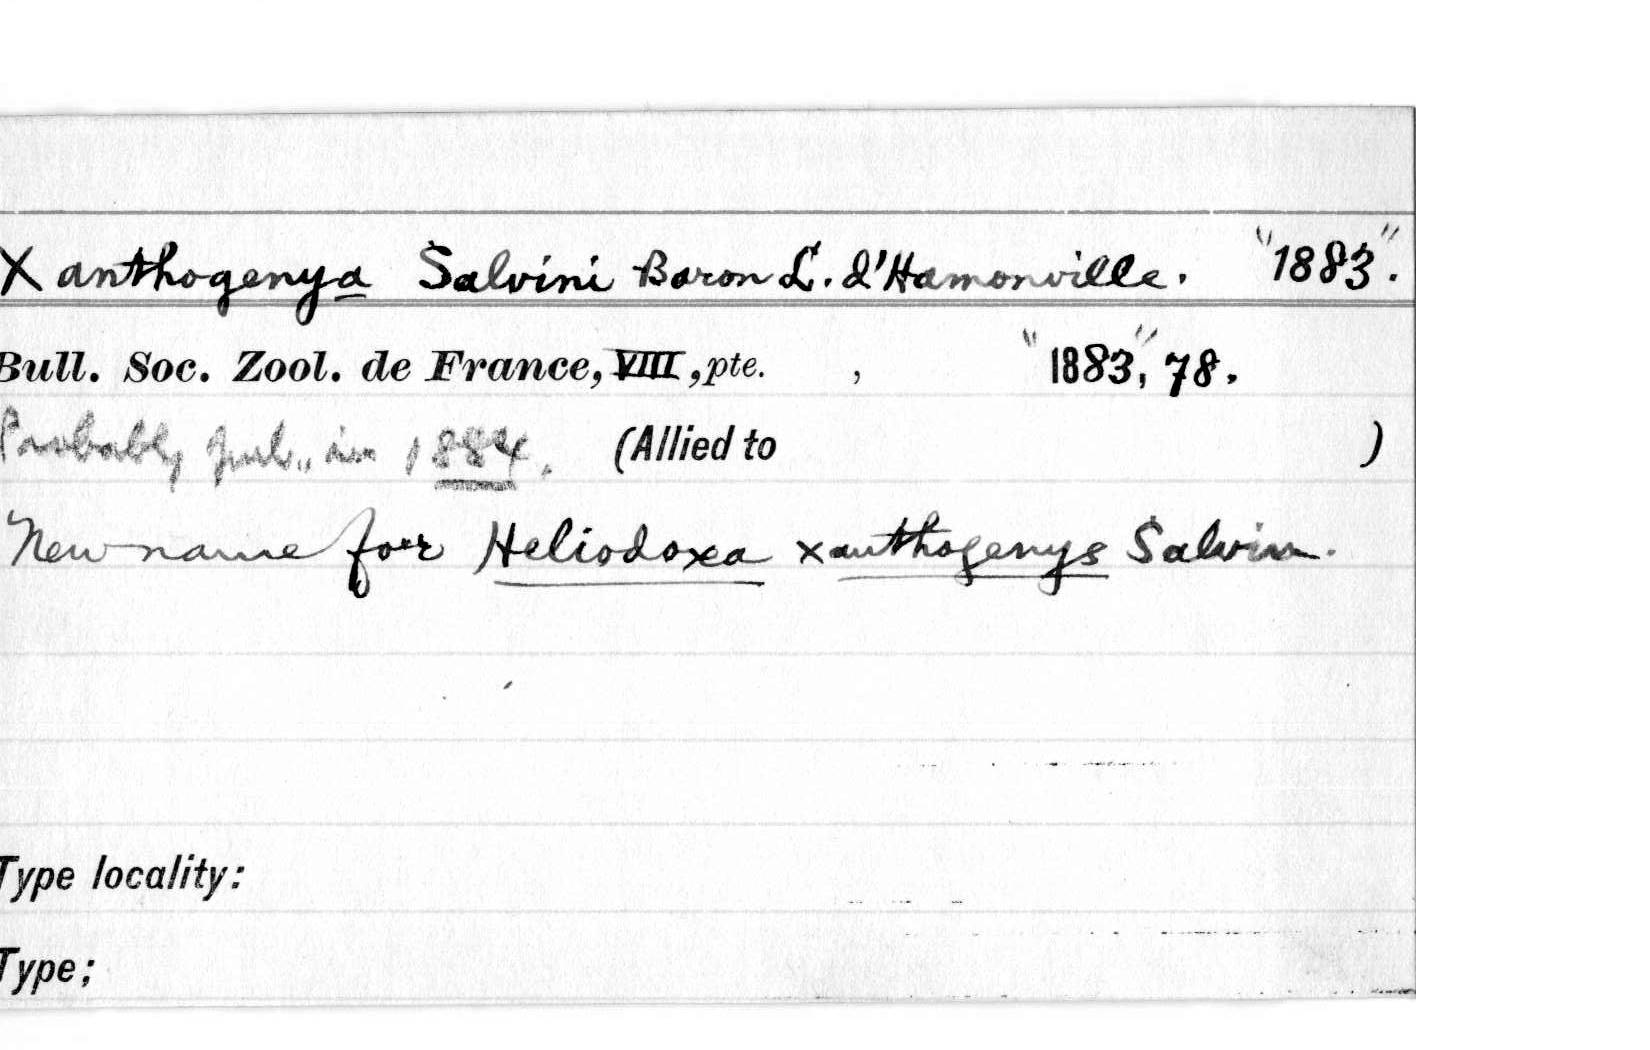 Xanthogenya Salvini Baron L. d'Hamonville. "1883".
Bull. Soc. Zool. de France, VIII, pte. , "1883", 78.
Probably pub., in 1884. (Allied to )
New name for Heliodoxa xanthogenys Salvin.
Type locality:
Type;